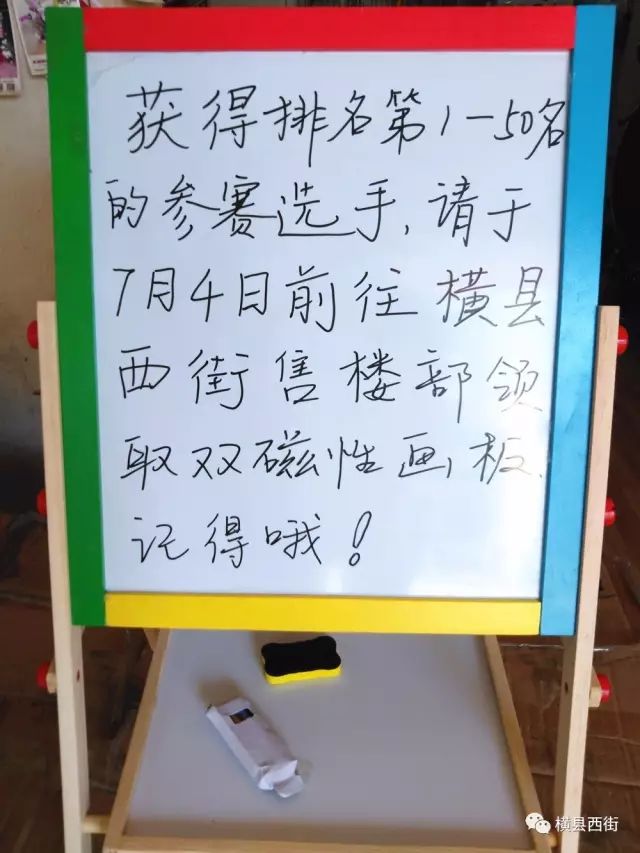 获得排名第1-50名
的参赛选手,请于
7月4日前往横县
西街售楼部领
取双磁性画板.
记得哦!
横县西街